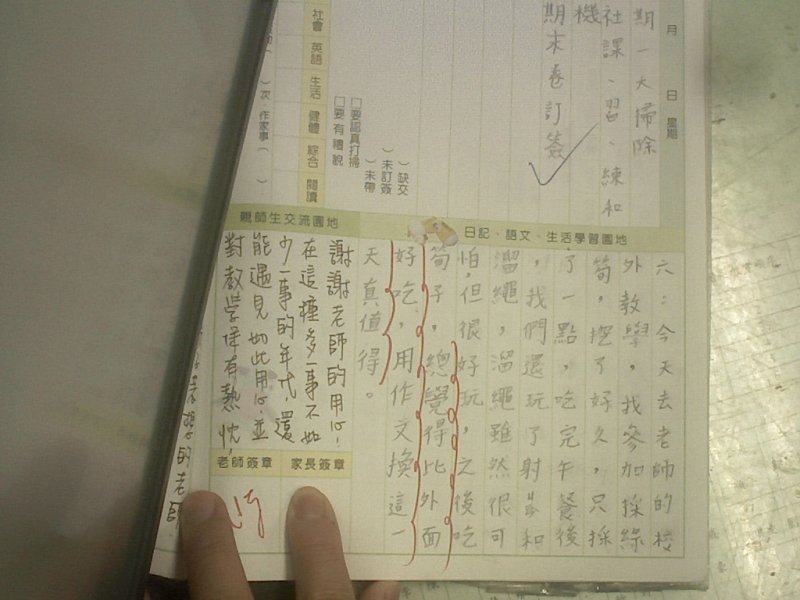 月　日　星期
期一大掃除
社課、習、練和
機
期末卷訂簽
）缺交
）未訂簽
）未帶
□要認真打掃
□要有禮貌
社會　英語　生活　健體　綜合　閱讀
）次　作家事（　）
日記、語文、生活學習園地
六：今天去老師的校
外教學，我參加採綠
筍，挖了好久，只採
了一點，吃完午餐後
，我們還玩了射箭和
溜繩，溜繩雖然很可
怕，但很好玩，之後吃
筍子，總覺得比外面
好吃，用作文換這一
天真值得。
親師生交流園地
謝謝老師的用心！
在這種多一事不如
少一事的年代，還
能遇見如此用心，並
對教學俱有熱忱，
想的老師
家長簽章
老師簽章